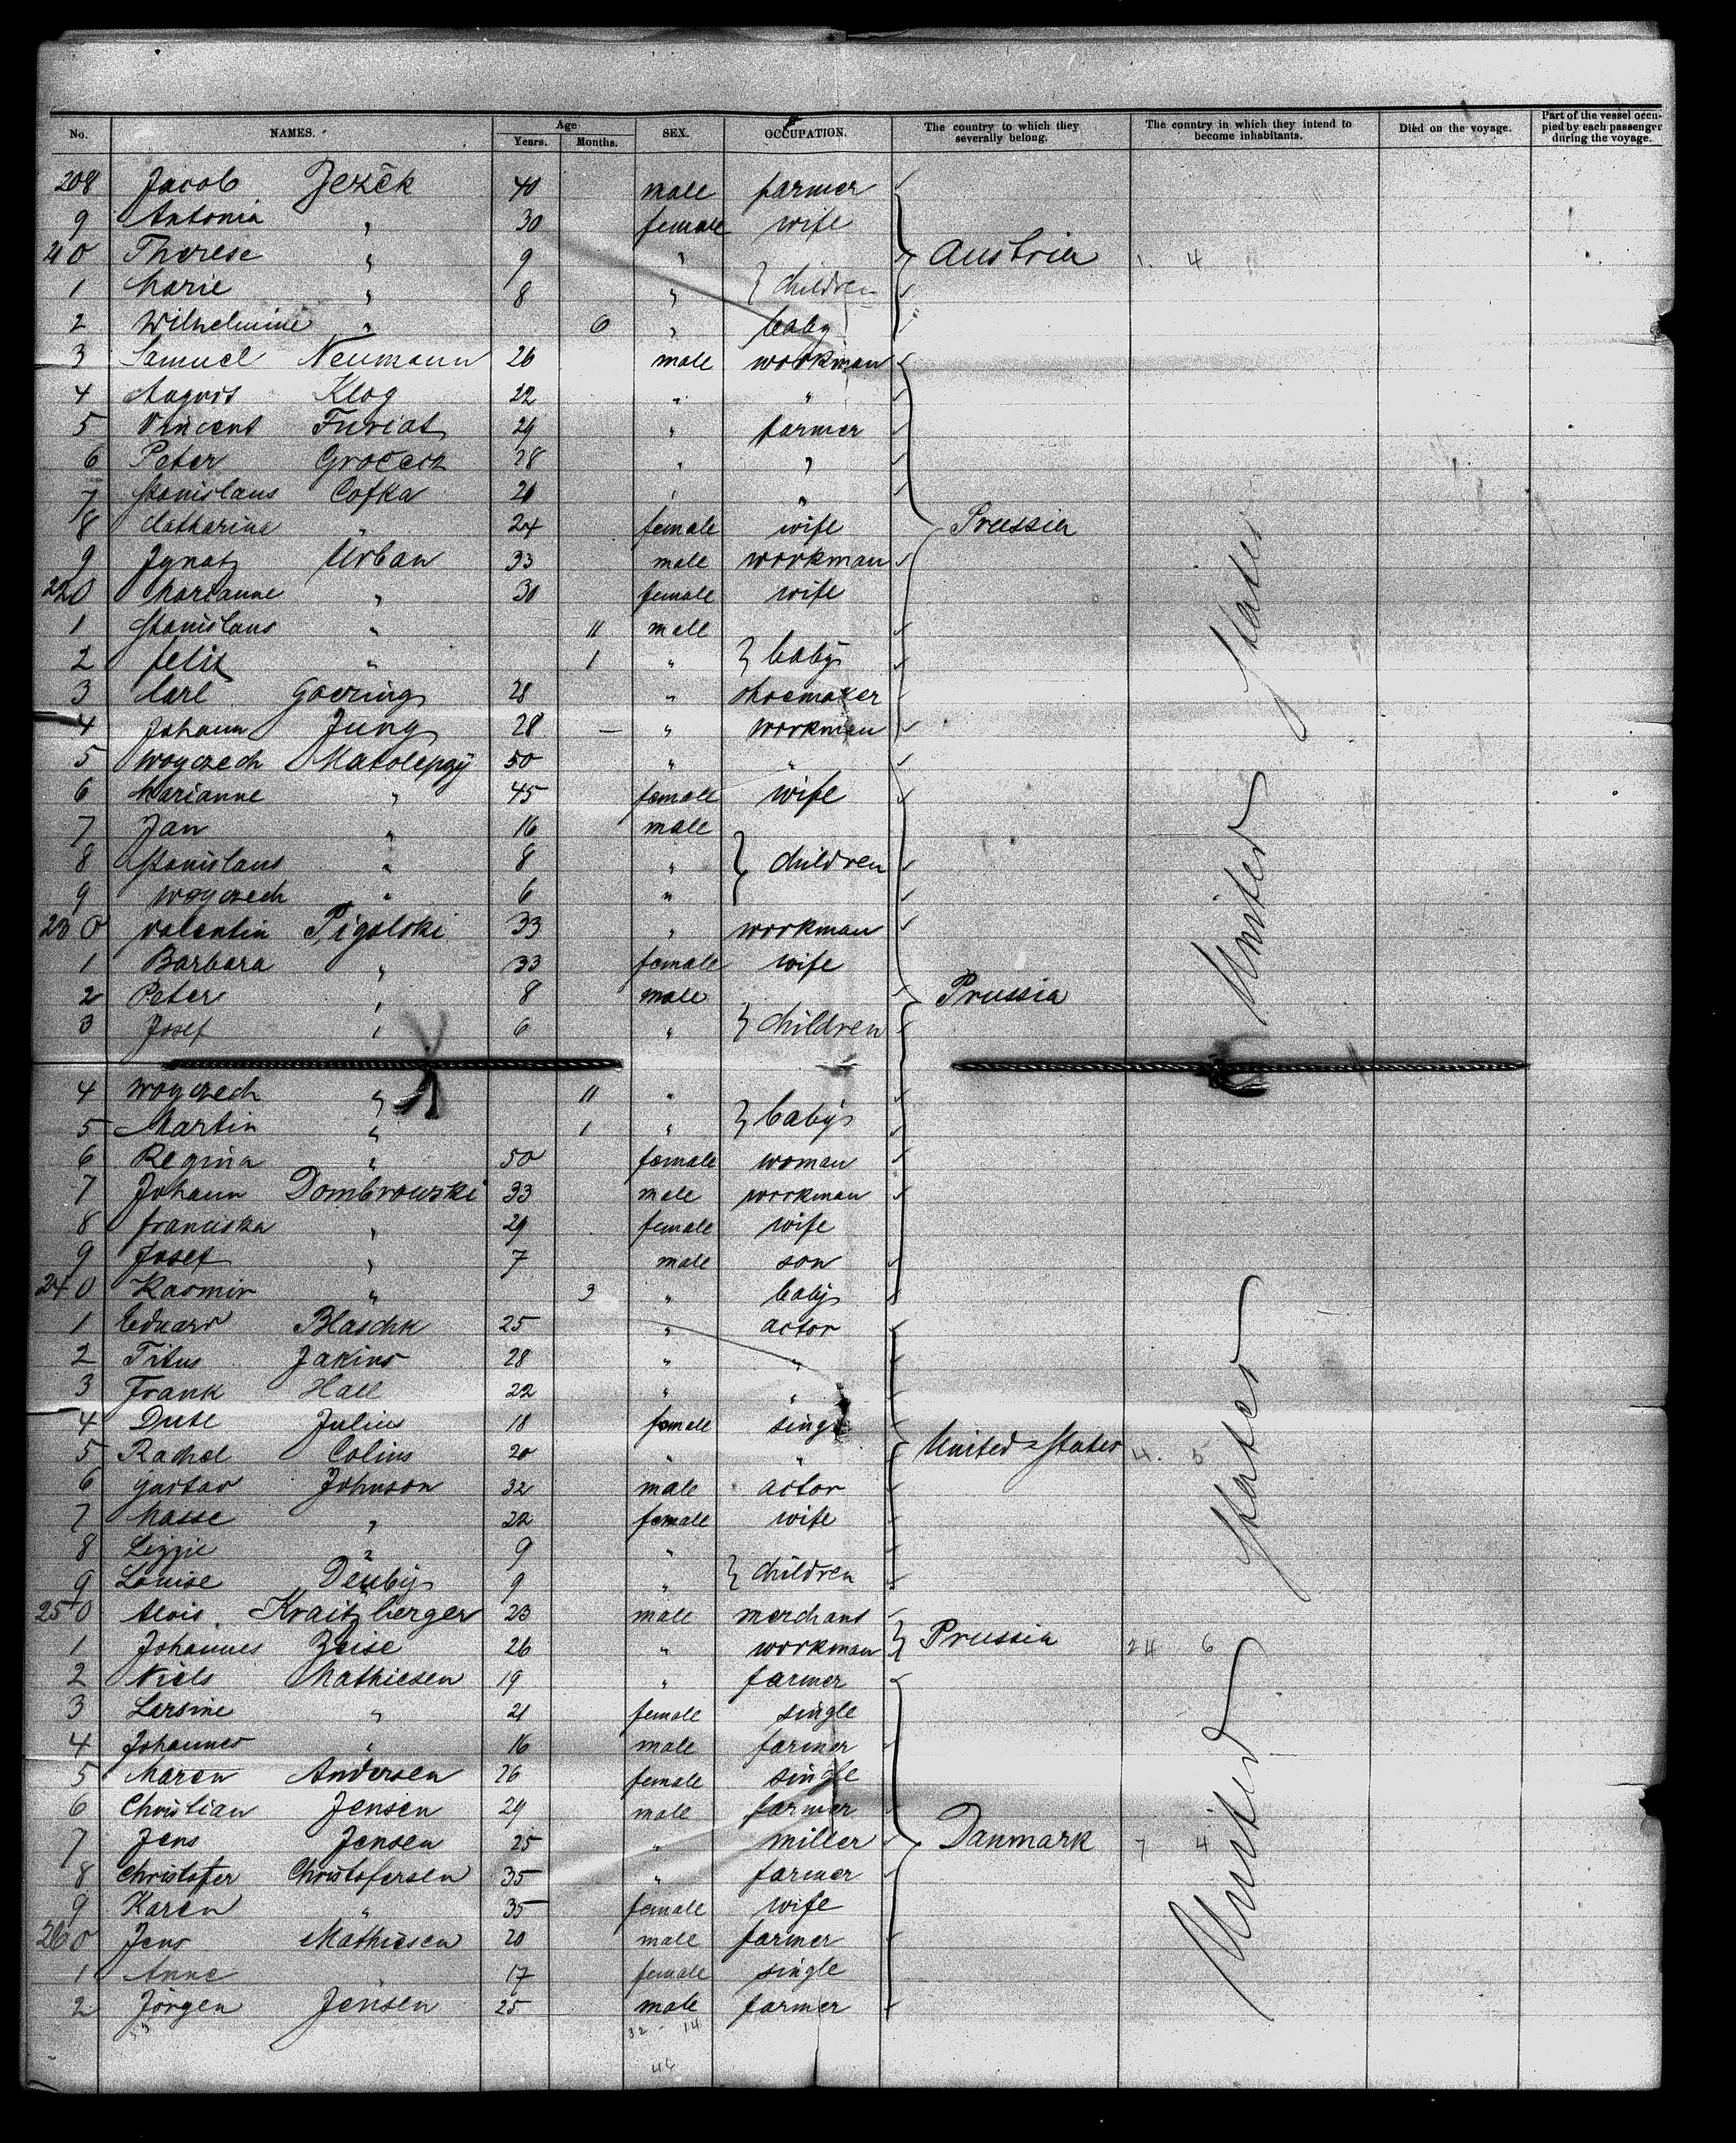 No. NAMES. Age Years. Months. SEX. OCCUPATION. The country to which they severally belong. The country in which they intend to become inhabitants. Died on the voyage. Part of the vessel occupied by each passenger during the voyage.
208 Jacob Jezěk 40 male farmer
9 Antonia " 30 female wife
210 Therese " 9 " Austria 1. 4
1 Marie " 8 " } children
2 Wilhelmine " 6 " baby
3 Samuel Neumann 26 male workman
4 August Klog 22 " "
5 Vincent Furiat 29 " farmer
6 Peter 28 " "
7 Stanislaus Cofka 26 " "
8 Catharina " 24 female wife Prussia
9 Ignatz Urban 33 male workman
220 Marianne " 30 female wife
1 Stanislaus " 11 male
2 Felix " 1 " } babys
3 Carl Goering 28 " shoemaker
4 Johann Jung 28 — " workman
5 Woyczech Matolepszy 50 " "
6 Marianne " 45 female wife
7 Jan " 16 male
8 Stanislaus " 8 " } children
9 Woyczech " 6 "
230 Valentin Pigolski 33 " workman
1 Barbara " 33 female wife
2 Peter " 8 male Prussia
3 Josef " 6 " } children
4 Woyczech " 11 "
5 Martin " 1 " } babys
6 Regina " 50 female woman
7 Johann Dombrowski 33 male workman
8 Franciska " 29 female wife
9 Josef " 7 male son
240 Kasmir " 3 " baby
1 Eduard Blaschk 25 " actor
2 Titus Jakins 28 " "
3 Frank Hall 22 " "
4 Dute Julius 18 female single
5 Rachel Colins 20 " " United States 4. 5
6 Gustav Johnson 32 male actor
7 Masse " 22 female wife
8 Lizzie " 9 "
9 Louise Denby 9 " } children
250 Alois Kraitzberger 23 male merchant
1 Johannes Zeise 26 " workman } Prussia 24 6
2 Niels Mathiesen 19 " farmer
3 Larsine " 21 female single
4 Johannes " 16 male farmer
5 Maren Andersen 26 female single
6 Christian Jensen 29 male farmer
7 Jens Jensen 25 " miller Danmark 7 4
8 Christofer Christofersen 35 " farmer
9 Karen " 35 female wife
260 Jens Mathiesen 20 male farmer
1 Anne " 17 female single
2 Jörgen Jensen 25 male farmer
32 - 14
46
United States
United States